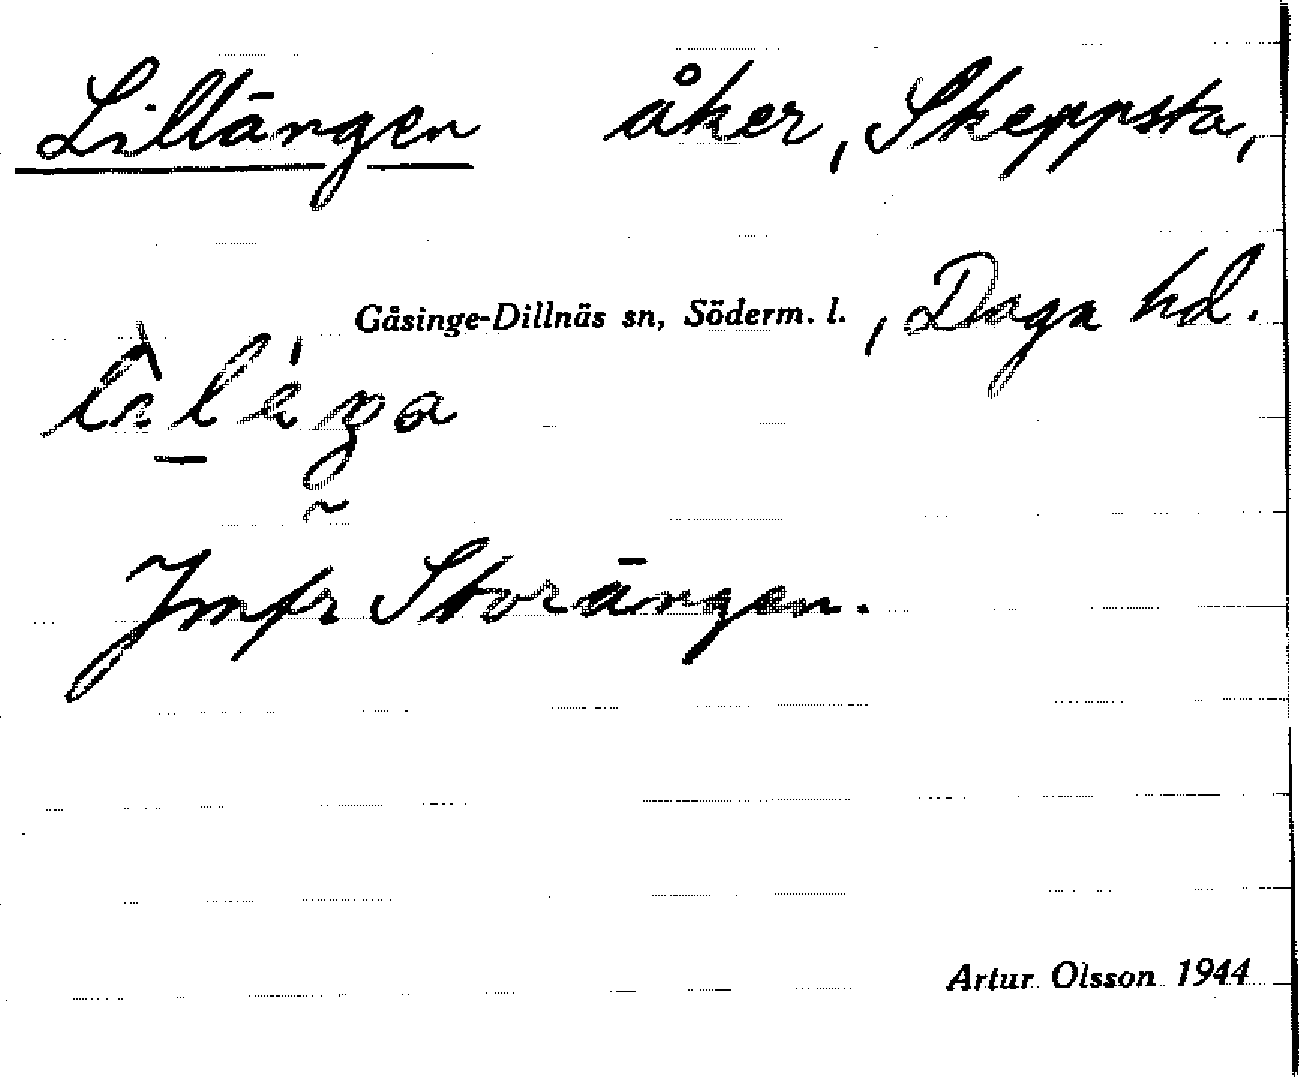 Lillängen åker, Skeppsta,
Gåsinge-Dillnäs sn, Söderm. l., Daga hd.
Jmfr Storängen.
Artur Olsson 1944